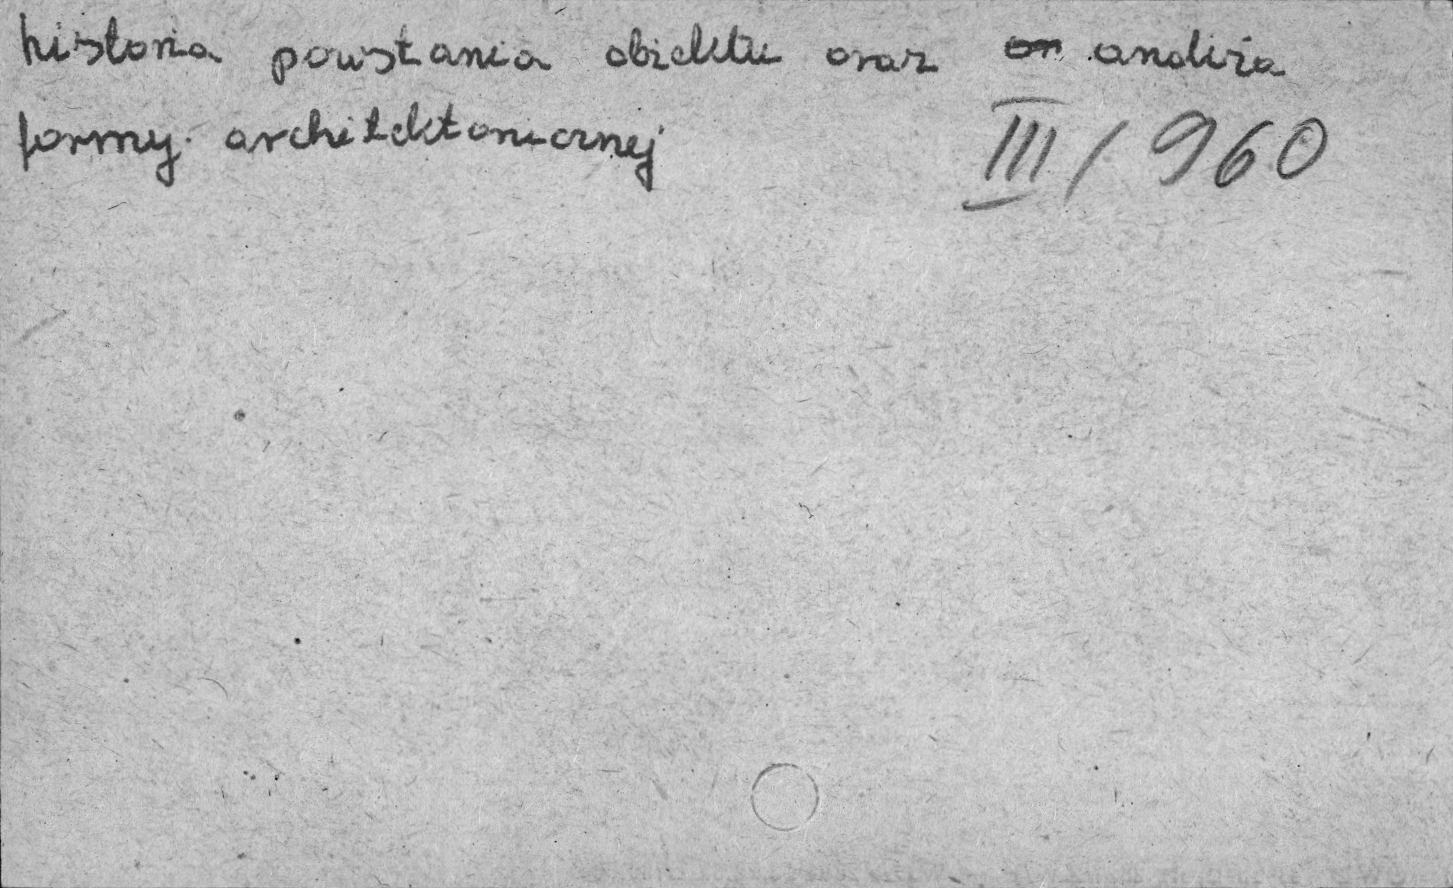 historia powstania obiektu oraz on analiza
formy architektonicznej
III/960